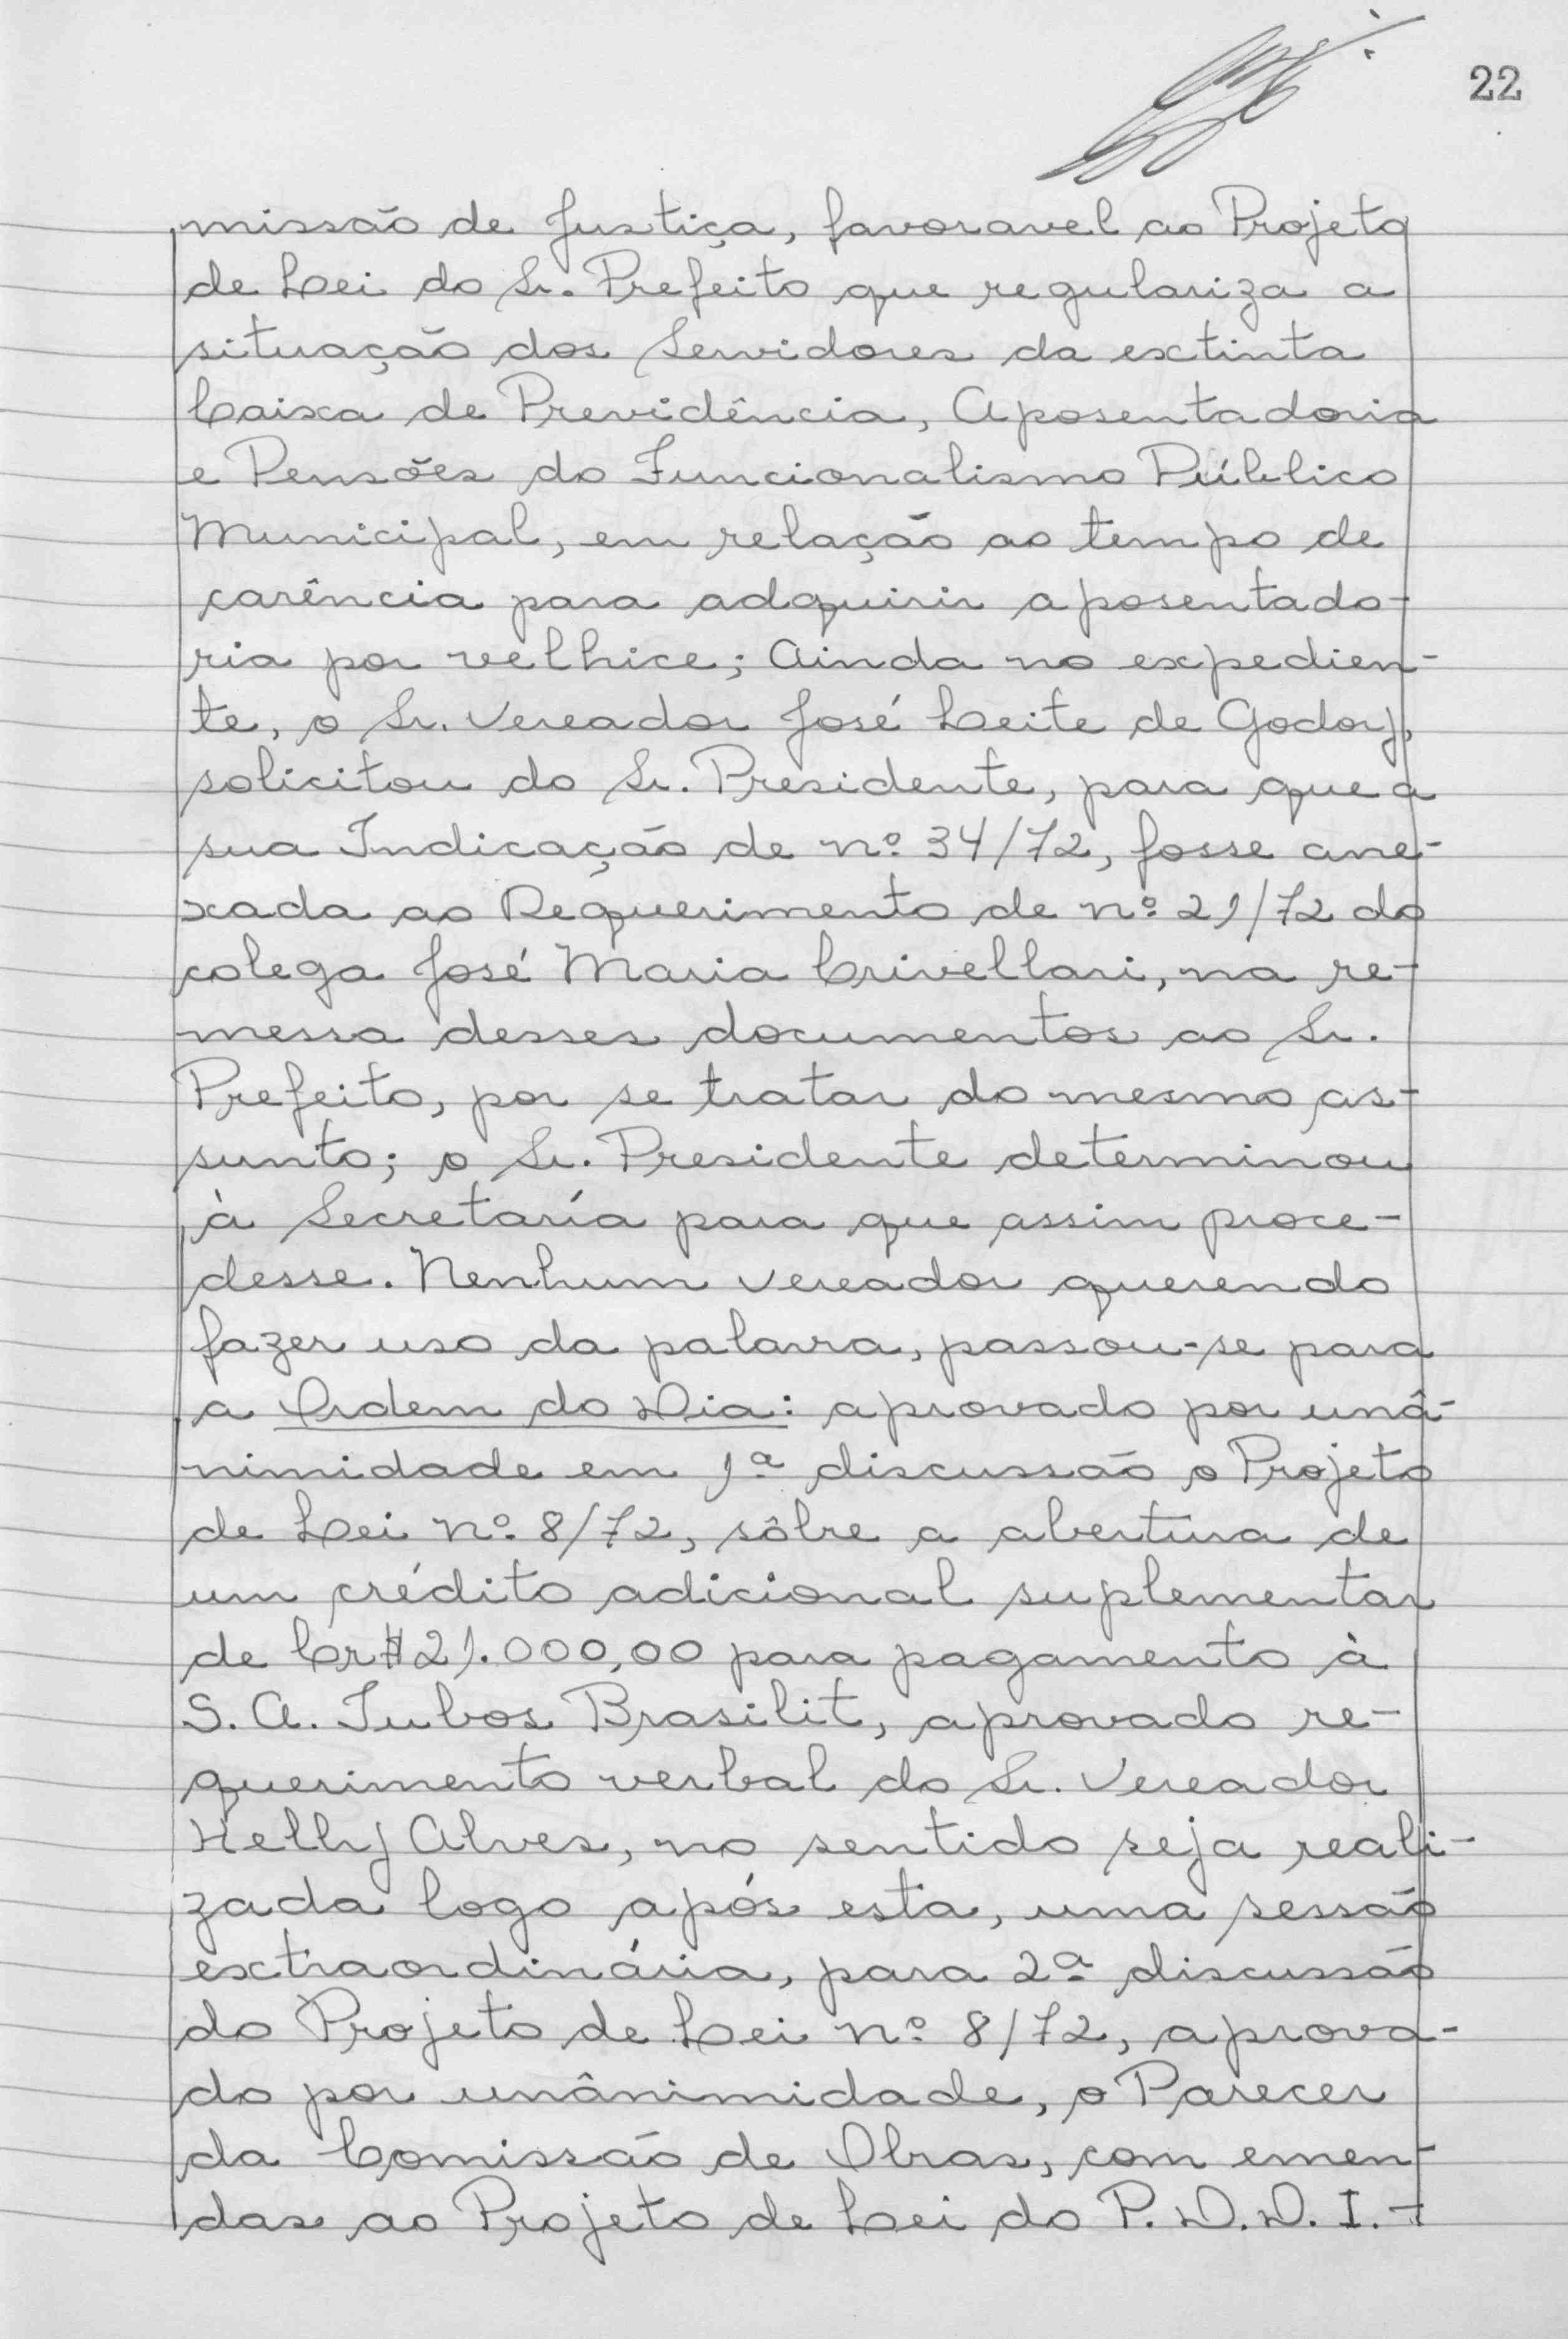 22
missão de Justiça, favoravel ao Projeto
de Lei do Sr. Prefeito que regulariza a
situação dos Servidores da extinta
Caixa de Previdência, Aposentadoria
e Pensões do Funcionalismo Público
Municipal, em relação ao tempo de
carência para adquirir aposentado-
ria por velhice; Ainda no expedien-
te, o Sr. Vereador José Leite de Godoy,
solicitou do Sr. Presidente, para que a
sua Indicação de nº 34/72, fosse ane-
xada ao Requerimento de nº 21/72 do
colega José Maria Crivellari, na re-
messa desses documentos ao Sr.
Prefeito, por se tratar do mesmo as-
sunto; o Sr. Presidente determinou
à Secretaría para que assim proce-
desse. Nenhum vereador querendo
fazer uso da palavra, passou-se para
a Ordem do Dia: aprovado por unâ-
nimidade em 1ª discussão o Projeto
de Lei nº 8/72, sôbre a abertura de
um crédito adicional suplementar
de Cr$ 21.000,00 para pagamento à
S. A. Tubos Brasilit, aprovado re-
querimento verbal do Sr. Vereador
Helly Alves, no sentido seja reali-
zada logo após esta, uma sessão
extraordinária, para 2ª discussão
do Projeto de Lei nº 8/72, aprova-
do por unânimidade, o Parecer
da Comissão de Obras, com emen-
das ao Projeto de Lei do P. D. D. I. -